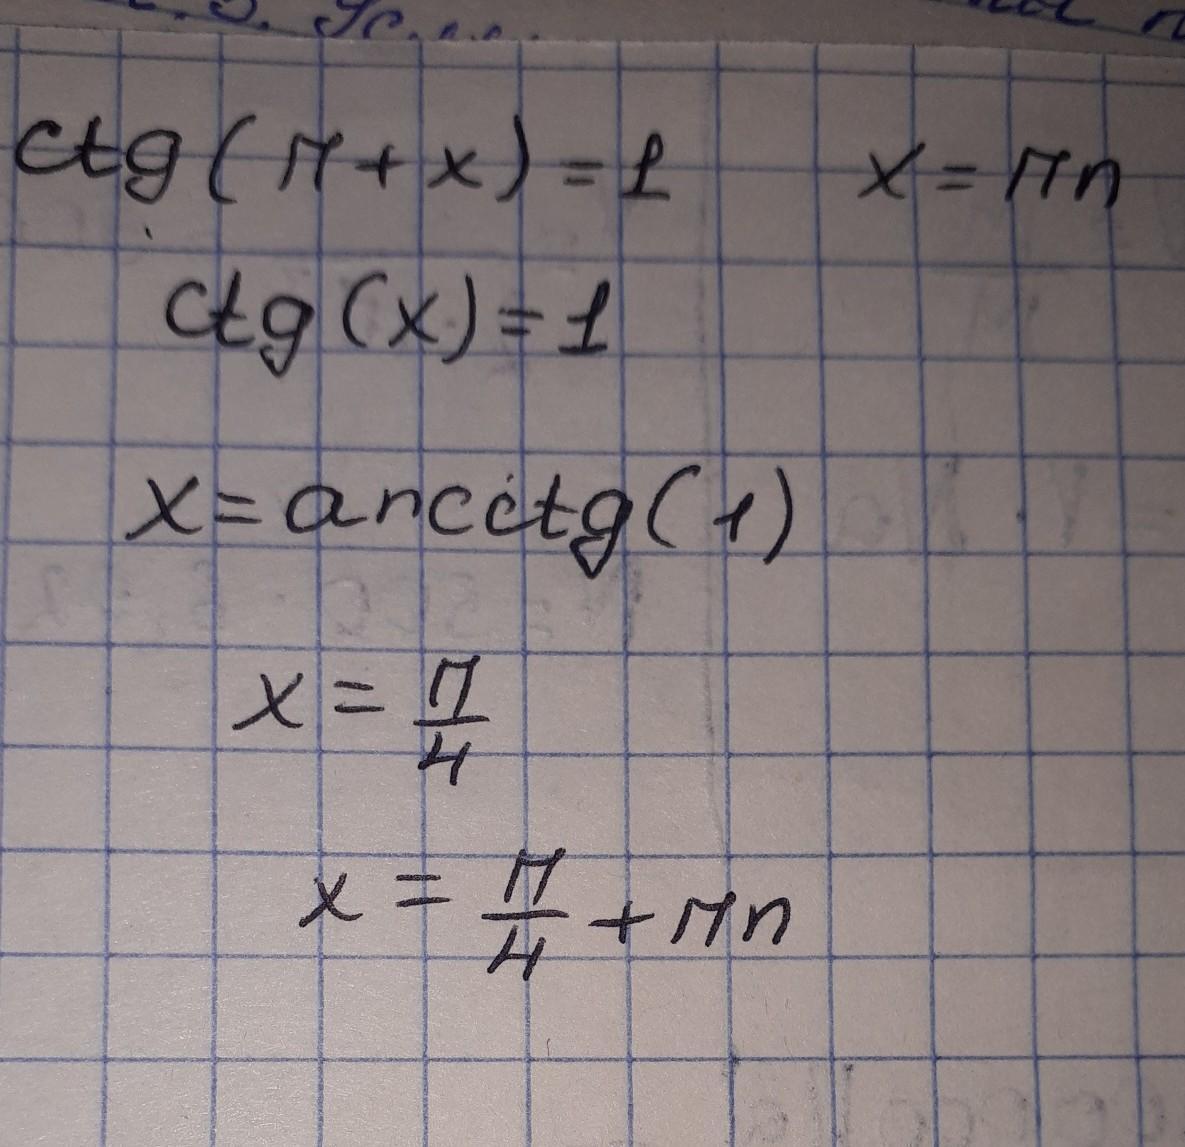 ctg(π+x)=1 x=πn
ctg(x)=1
x=arcctg(1)
x=π/4
x=π/4+πn